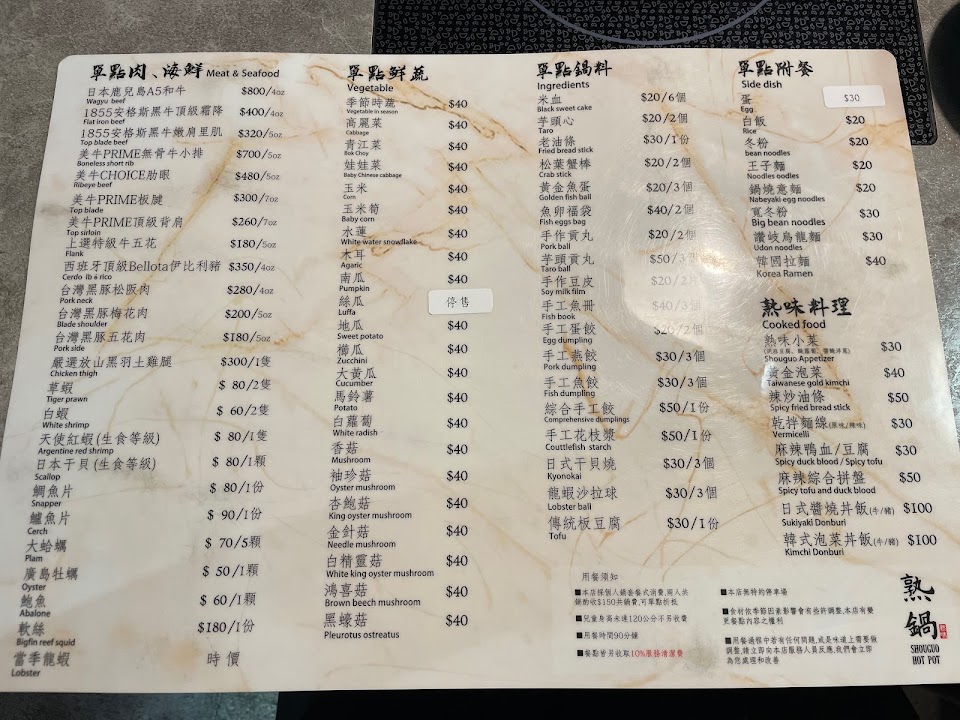 單點肉、海鮮 Meat & Seafood
日本鹿兒島A5和牛 $800/4oz
Wagyu beef
1855安格斯黑牛頂級霜降 $400/4oz
Flat iron beef
1855安格斯黑牛嫩肩里肌 $320/5oz
Top blade beef
美牛PRIME無骨牛小排 $700/5oz
Boneless short rib
美牛CHOICE肋眼 $480/5oz
Ribeye beef
美牛PRIME板腱 $300/7oz
Top blade
美牛PRIME頂級背肩 $260/7oz
Top sirloin
上選特級牛五花 $180/5oz
Flank
西班牙頂級Bellota伊比利豬 $350/4oz
Cerdo Ib é rico
台灣黑豚松阪肉 $280/4oz
Pork neck
台灣黑豚梅花肉 $200/5oz
Blade shoulder
台灣黑豚五花肉 $180/5oz
Pork side
嚴選放山黑羽土雞腿 $300/1隻
Chicken thigh
草蝦 $ 80/2隻
Tiger prawn
白蝦 $ 60/2隻
White shrimp
天使紅蝦(生食等級) $ 80/1隻
Argentine red shrimp
日本干貝(生食等級) $ 80/1顆
Scallop
鯛魚片 $ 80/1份
Snapper
鱸魚片 $ 90/1份
Cerch
大蛤蠣 $ 70/5顆
Plam
廣島牡蠣 $ 50/1顆
Oyster
鮑魚 $ 60/1顆
Abalone
軟絲 $180/1份
Bigfin reef squid
當季龍蝦 時價
Lobster
單點鮮蔬
Vegetable
季節時蔬 $40
Vegetable in season
高麗菜 $40
Cabbage
青江菜 $40
Bok Choy
娃娃菜 $40
Baby Chinese cabbage
玉米 $40
Corn
玉米筍 $40
Baby corn
水蓮 $40
White water snowflake
木耳 $40
Agaric
南瓜 $40
Pumpkin
絲瓜 停售
Luffa
地瓜 $40
Sweet potato
櫛瓜 $40
Zucchini
大黃瓜 $40
Cucumber
馬鈴薯 $40
Potato
白蘿蔔 $40
White radish
香菇 $40
Mushroom
袖珍菇 $40
Oyster mushroom
杏鮑菇 $40
King oyster mushroom
金針菇 $40
Needle mushroom
白精靈菇 $40
White king oyster mushroom
鴻喜菇 $40
Brown beech mushroom
黑蠔菇 $40
Pleurotus ostreatus
單點鍋料
Ingredients
米血 $20/6個
Black sweet cake
芋頭心 $20/2個
Taro
老油條 $30/1份
Fried bread stick
松葉蟹棒 $20/2個
Crab stick
黃金魚蛋 $20/3個
Golden fish ball
魚卵福袋 $40/2個
Fish eggs bag
手作貢丸 $20/2個
Pork ball
芋頭貢丸 $50/3個
Taro ball
手作豆皮 $20/2片
Soy milk film
手工魚冊 $40/3個
Fish book
手工蛋餃 $20/2個
Egg dumpling
手工燕餃 $30/3個
Pork dumpling
手工魚餃 $30/3個
Fish dumpling
綜合手工餃 $50/1份
Comprehensive dumplings
手工花枝漿 $50/1份
Couttlefish starch
日式干貝燒 $30/3個
Kyonokai
龍蝦沙拉球 $30/3個
Lobster ball
傳統板豆腐 $30/1份
Tofu
單點附餐
Side dish
蛋 $30
Egg
白飯 $20
Rice
冬粉 $20
bean noodles
王子麵 $20
Noodles oodles
鍋燒意麵 $20
Nabeyaki egg noodles
寬冬粉 $30
Big bean noodles
讚岐烏龍麵 $30
Udon noodles
韓國拉麵 $40
Korea Ramen
熟味料理
Cooked food
熟味小菜 $30
Shouguo Appetizer
黃金泡菜 $40
Taiwanese gold kimchi
辣炒油條 $50
Spicy fried bread stick
乾拌麵線(原味/辣味) $30
Vermicelli
麻辣鴨血/豆腐 $30
Spicy duck blood / Spicy tofu
麻辣綜合拼盤 $50
Spicy tofu and duck blood
日式醬燒丼飯(牛/豬) $100
Sukiyaki Donburi
韓式泡菜丼飯(牛/豬) $100
Kimchi Donburi
用餐須知
■本店採個人鍋套餐式消費,兩人共
鍋酌收$150共鍋費,可單點折抵
■兒童身高未達120公分不另收費
■用餐時間90分鐘
■餐點皆另收取10%服務清潔費
■本店無特約停車場
■食材依季節因素影響會有些許調整,本店有變
更餐點內容之權利
■用餐過程中若有任何問題,或是味道上需要做
調整,請立即向本店服務人員反應,我們會立即
為您處理和改善
熟鍋
SHOUGUO
HOT POT